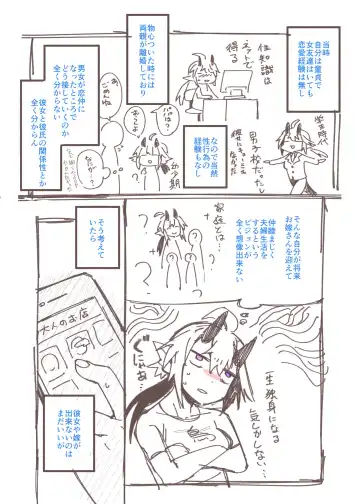 当時
自分は童貞で
女友達はいても
恋愛経験は無し
学生時代
性知識は
ネットで
得る
男子校だったし
なので当然
性行為の
経験もなし
物心ついた時には
両親が離婚しており
幼少期
男女が恋仲に
なったところで
どう接していくのか
全く分からない
彼女と彼氏の関係性とか
全く分からん
ごめんね
そんな自分が将来
お嫁さんを迎えて
仲睦まじく
夫婦生活を
するという
ビジョンが
全く想像出来ない
家庭とは…
?
?
?
そう考えて
いたら
一生独身になる
気しかしない…
大人のお店
彼女や嫁が
出来ないのは
まだいいが